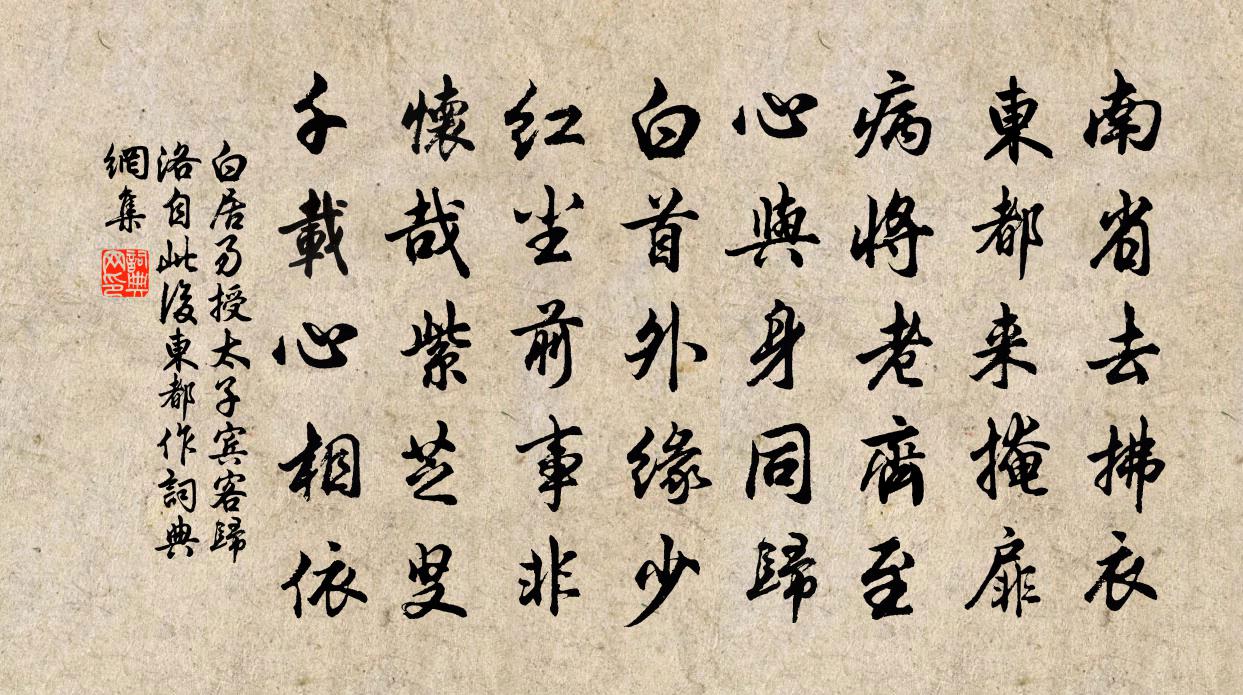 南省去拂衣
東都来掩扉
病將老齊至
心與身同歸
白首外緣少
红尘前事非
懷哉紫芝叟
千載心相依
白居易授太子宾客歸
洛自此後東都作詞典
網集
詞典網印